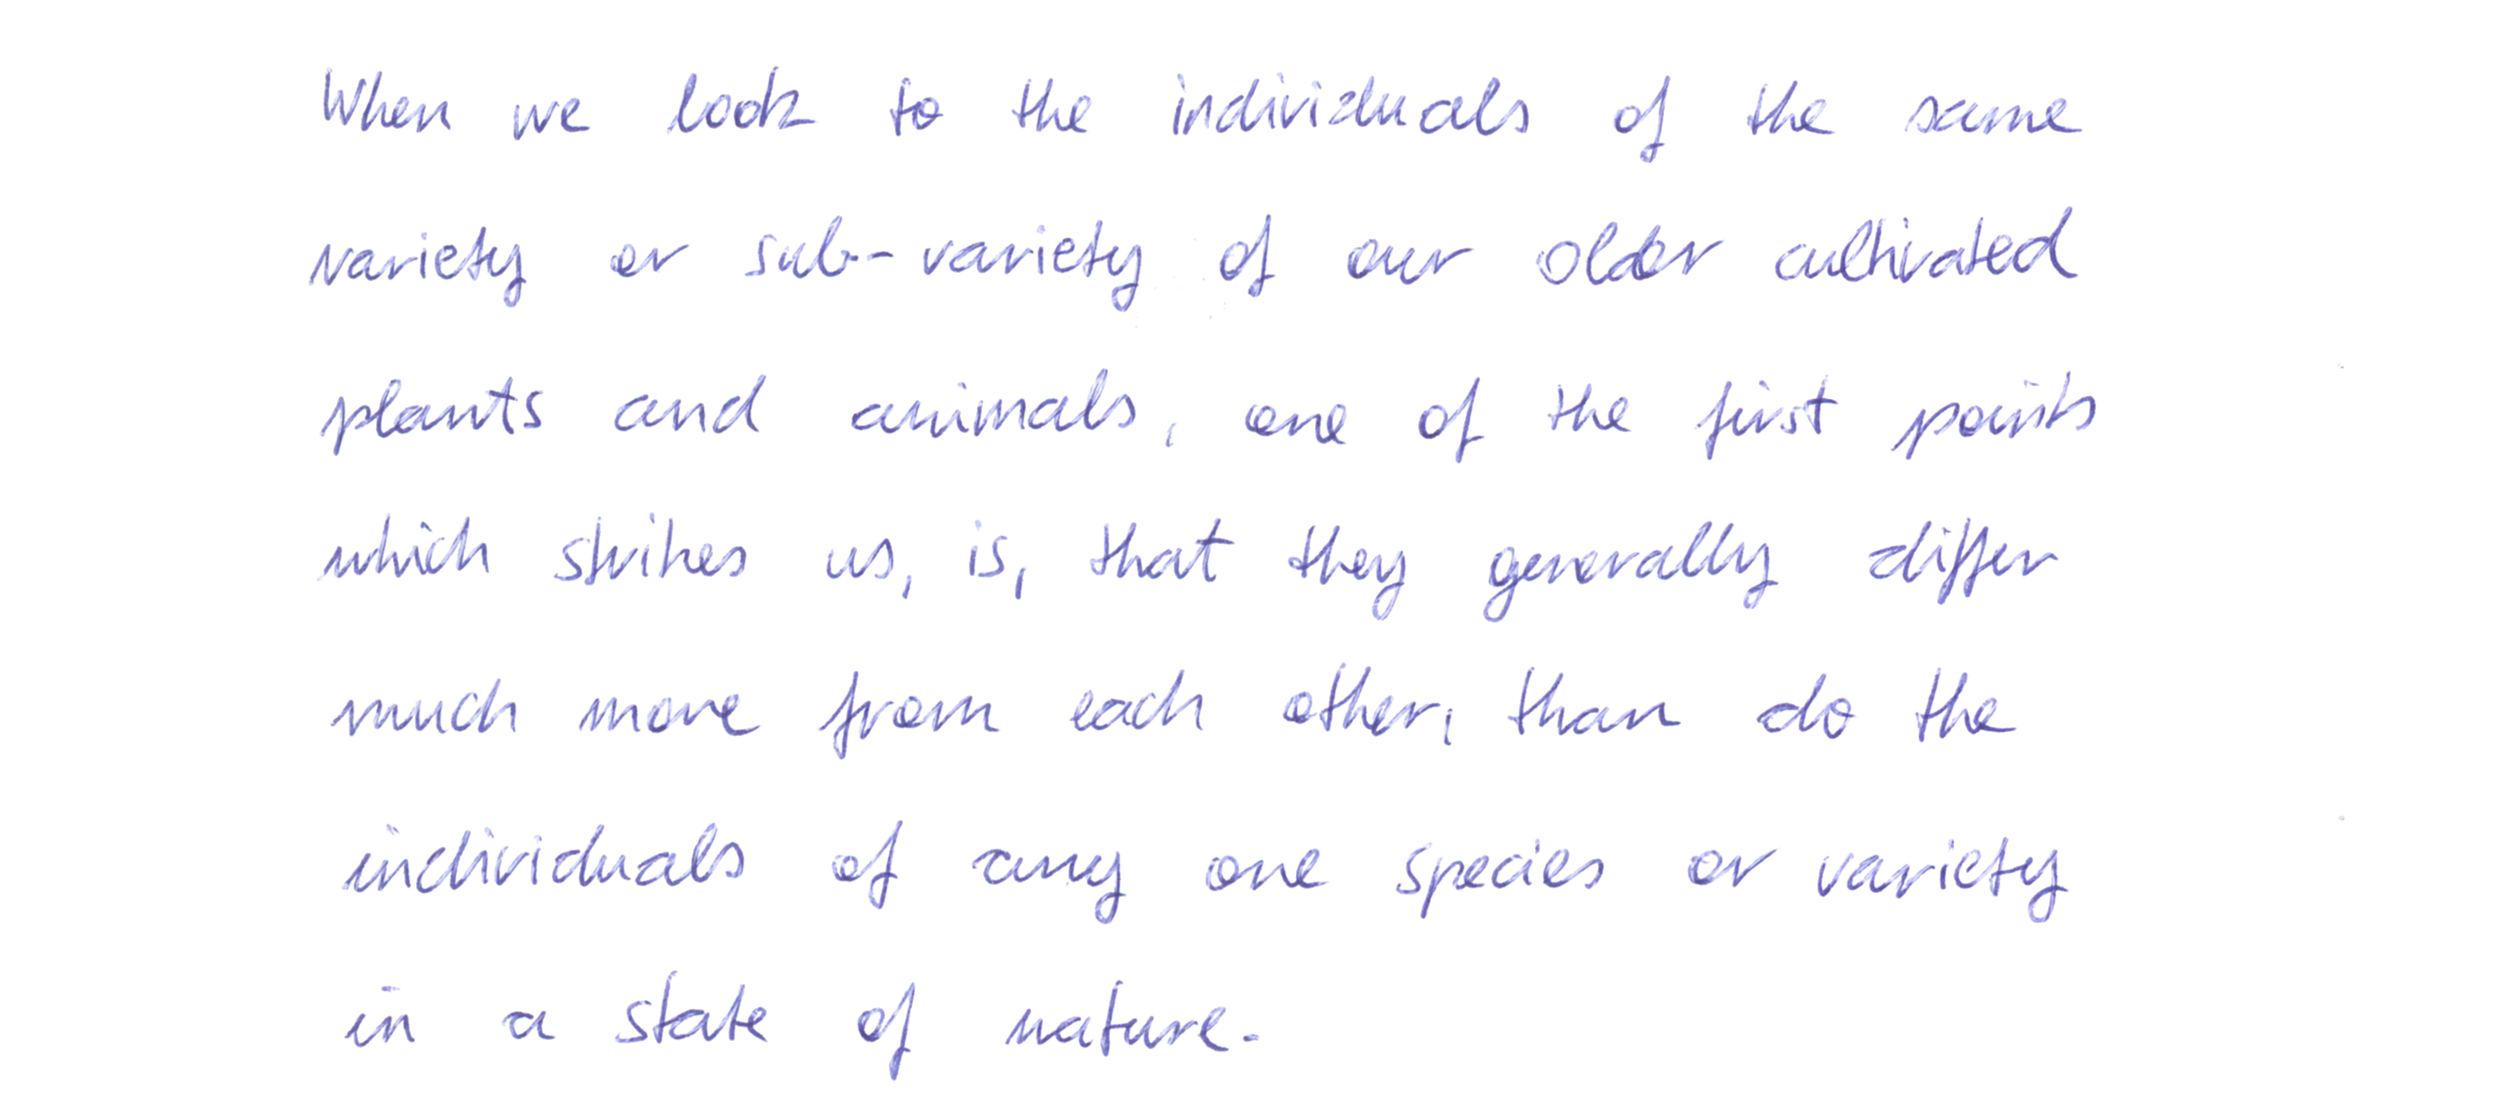 When we look to the individuals of the same
variety or sub-variety of our older cultivated
plants and animals, one of the first points
which strikes us, is, that they generally differ
much more from each other, than do the
individuals of any one species or variety
in a state of nature.